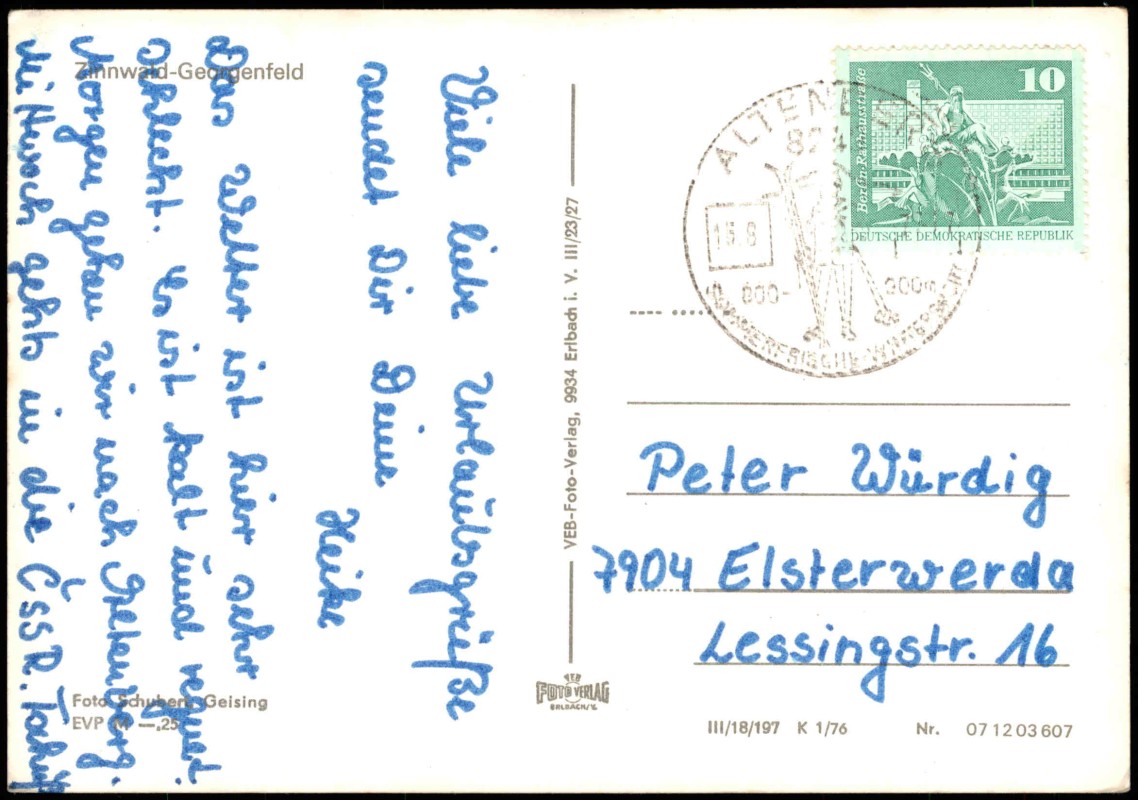 Zinnwald-Georgenfeld
Viele liebe Urlaubsgrüße
sendet Dir Deine
Heike
Das Wetter ist hier sehr
schlecht. Es ist kalt und regnet.
Morgen gehen wir nach Altenberg.
Mittwoch gehts in die ČSSR.
Foto Schubert, Geising
EVP M —,25
VEB-Foto-Verlag, 9934 Erlbach i. V. III/23/27
VEB
FOTO VERLAG
ERLBACH/V.
10
Berlin-Rathausstraße
DEUTSCHE DEMOKRATISCHE REPUBLIK
ALTENBERG
824
800-
900m
SOMMERFRISCHE-WINTERSPORT
Peter Würdig
7904 Elsterwerda
Lessingstr. 16
III/18/197 K 1/76 Nr. 07 12 03 607